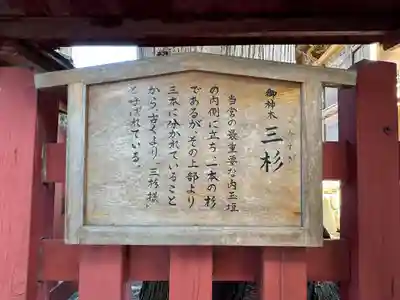 御神木
三杉
さんすぎ
当宮の最重要な内玉垣
の内側に立ち、一本の杉
であるが、その上部より
三本に分かれていること
から、古くより“三杉様”
と呼ばれている。